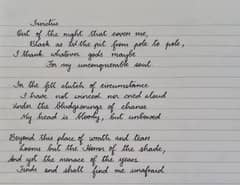 Invictus
Out of the night that covers me,
Black as the pit from pole to pole,
I thank whatever gods maybe
For my unconquerable soul.
In the fell clutch of circumstance
I have not winced nor cried aloud
Under the bludgeonings of chance
My head is bloody, but unbowed
Beyond this place of wrath and tears
Looms but the Horror of the shade,
And yet the menace of the years
Finds and shall find me unafraid